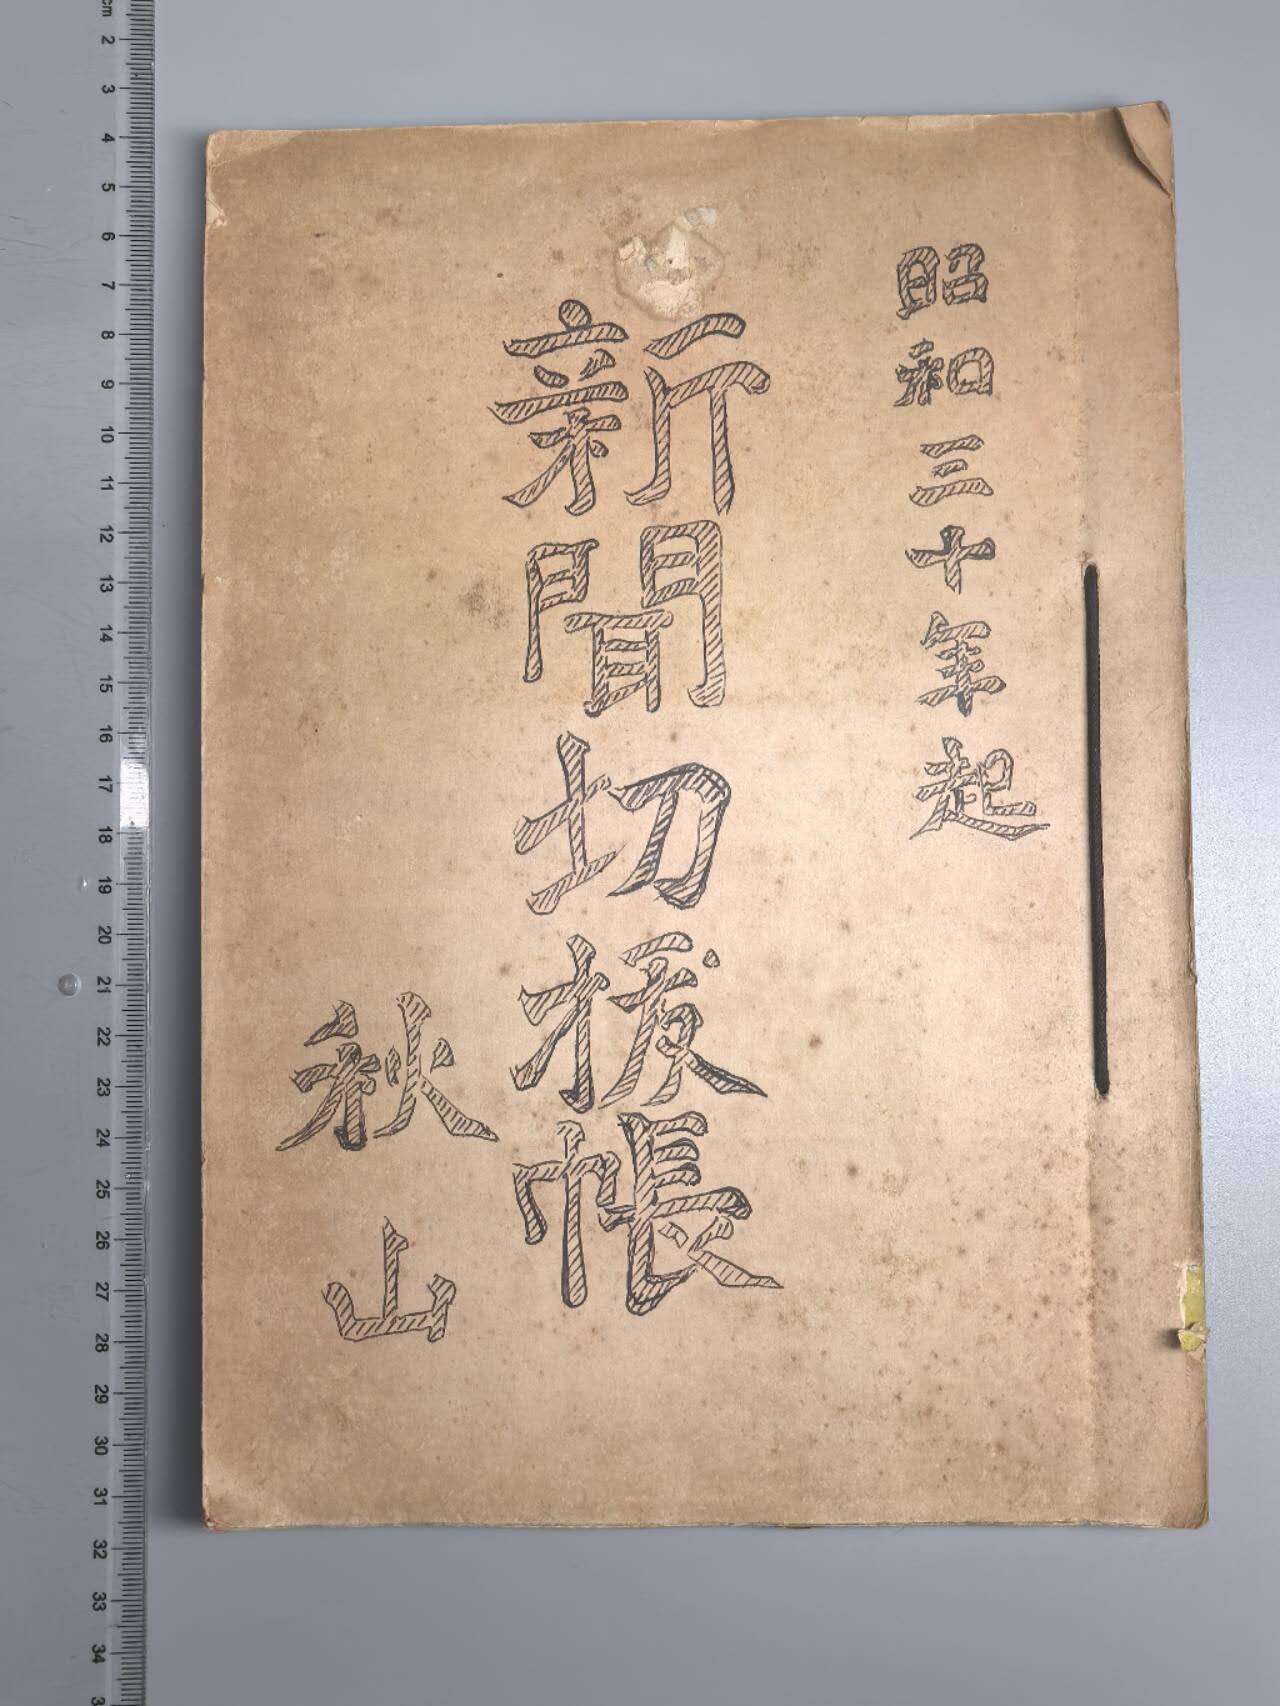 昭和三十年起
新聞切抜帳
秋山
cm
2
3
4
5
6
7
8
9
10
11
12
13
14
15
16
17
18
19
20
21
22
23
24
25
26
27
28
29
30
31
32
33
34